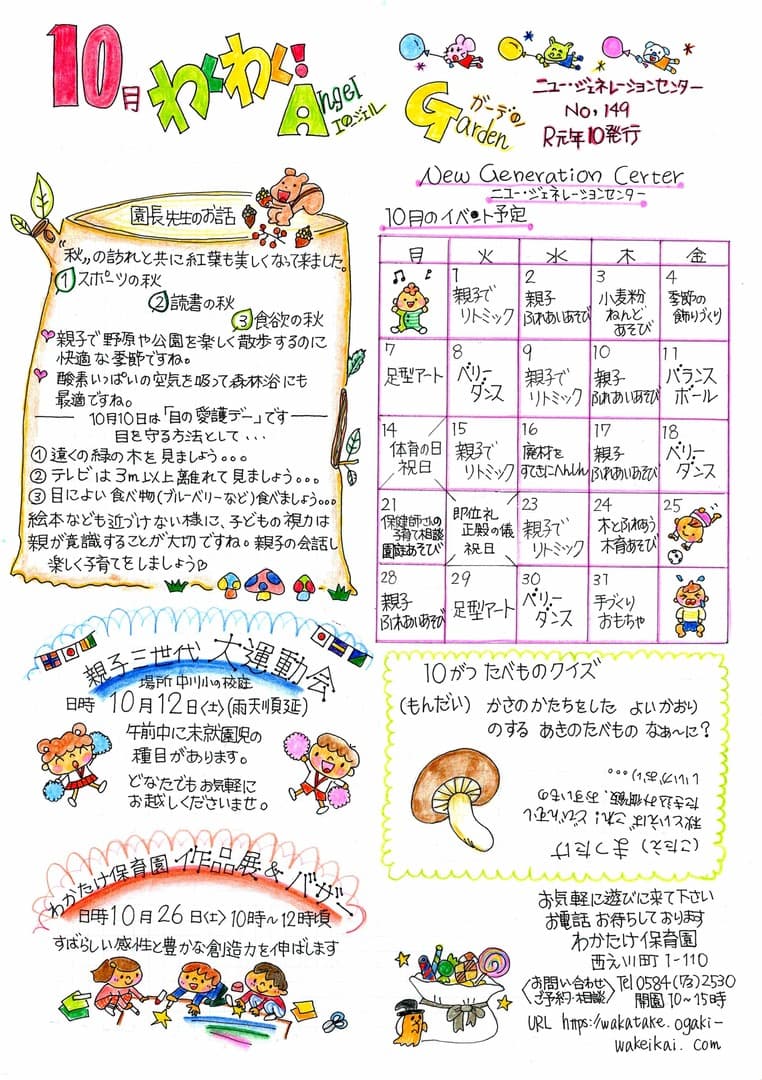 10月 わくわく! Angel エンジェル
Garden ガーデン
ニュー・ジェネレーションセンター
No,149
R元年10発行
園長先生のお話
"秋"の訪れと共に紅葉も美しくなって来ました。
①スポーツの秋
②読書の秋
③食欲の秋
親子で野原や公園を楽しく散歩するのに
快適な季節ですね。
酸素いっぱいの空気を吸って森林浴にも
最適ですね。
10月10日は「目の愛護デー」です
目を守る方法として...
①遠くの緑の木を見ましょう。。。
②テレビは3m以上離れて見ましょう。。。
③目によい食べ物(ブルーベリーなど)食べましょう。。。
絵本なども近づけない様に、子どもの視力は
親が意識することが大切ですね。親子の会話し
楽しく子育てをしましょう
New Generation Certer
ニュー・ジェネレーションセンター
10月のイベント予定
月 火 水 木 金
1 親子で リトミック
2 親子 ふれあいあそび
3 小麦粉 ねんど あそび
4 季節の 飾りづくり
7 足型アート
8 ベリー ダンス
9 親子で リトミック
10 親子 ふれあいあそび
11 バランス ボール
14 体育の日 祝日
15 親子で リトミック
16 廃材を すてきにへんしん
17 親子 ふれあいあそび
18 ベリー ダンス
21 保健師さんの 子育て相談 園庭あそび
即位礼 正殿の儀 祝日
23 親子で リトミック
24 木とふれあう 木育あそび
25
28 親子 ふれあいあそび
29 足型アート
30 ベリー ダンス
31 手づくり おもちゃ
親子三世代 大運動会
場所 中川小の校庭
日時 10月12日(土)(雨天順延)
午前中に未就園児の
種目があります。
どなたでもお気軽に
お越しくださいませ。
わかたけ保育園 作品展&バザー
日時10月26日(土)10時〜12時頃
すばらしい感性と豊かな創造力を伸ばします
10がつ たべものクイズ
(もんだい) かさのかたちをした よいかおり
のする あきのたべもの なぁ〜に?
(こたえ) まつたけ
秋といえば、これ! どびんむし
たきこみ御飯、おすいもの
いいかおり...
お気軽に遊びに来て下さい
お電話お待ちしております
わかたけ保育園
西え川町1-110
お問い合わせ ご予約・相談
Tel 0584(73)2530
開園10〜15時
URL https://wakatake.ogaki-
wakeikai.com